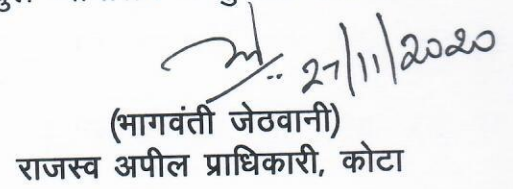 27/11/2020
(भागवंती जेठवानी)
राजस्व अपील प्राधिकारी, कोटा